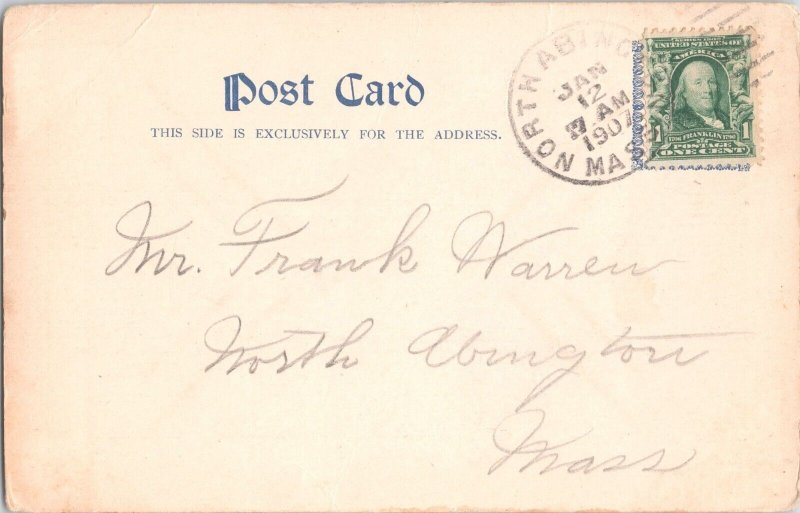 Post Card
THIS SIDE IS EXCLUSIVELY FOR THE ADDRESS.
NORTH ABING
JAN
12
AM
1907
MASS
SERIES 1902
UNITED STATES OF
AMERICA
1706 FRANKLIN 1790
POSTAGE
1 ONE CENT 1
Mr. Frank Warren
North Abington
Mass